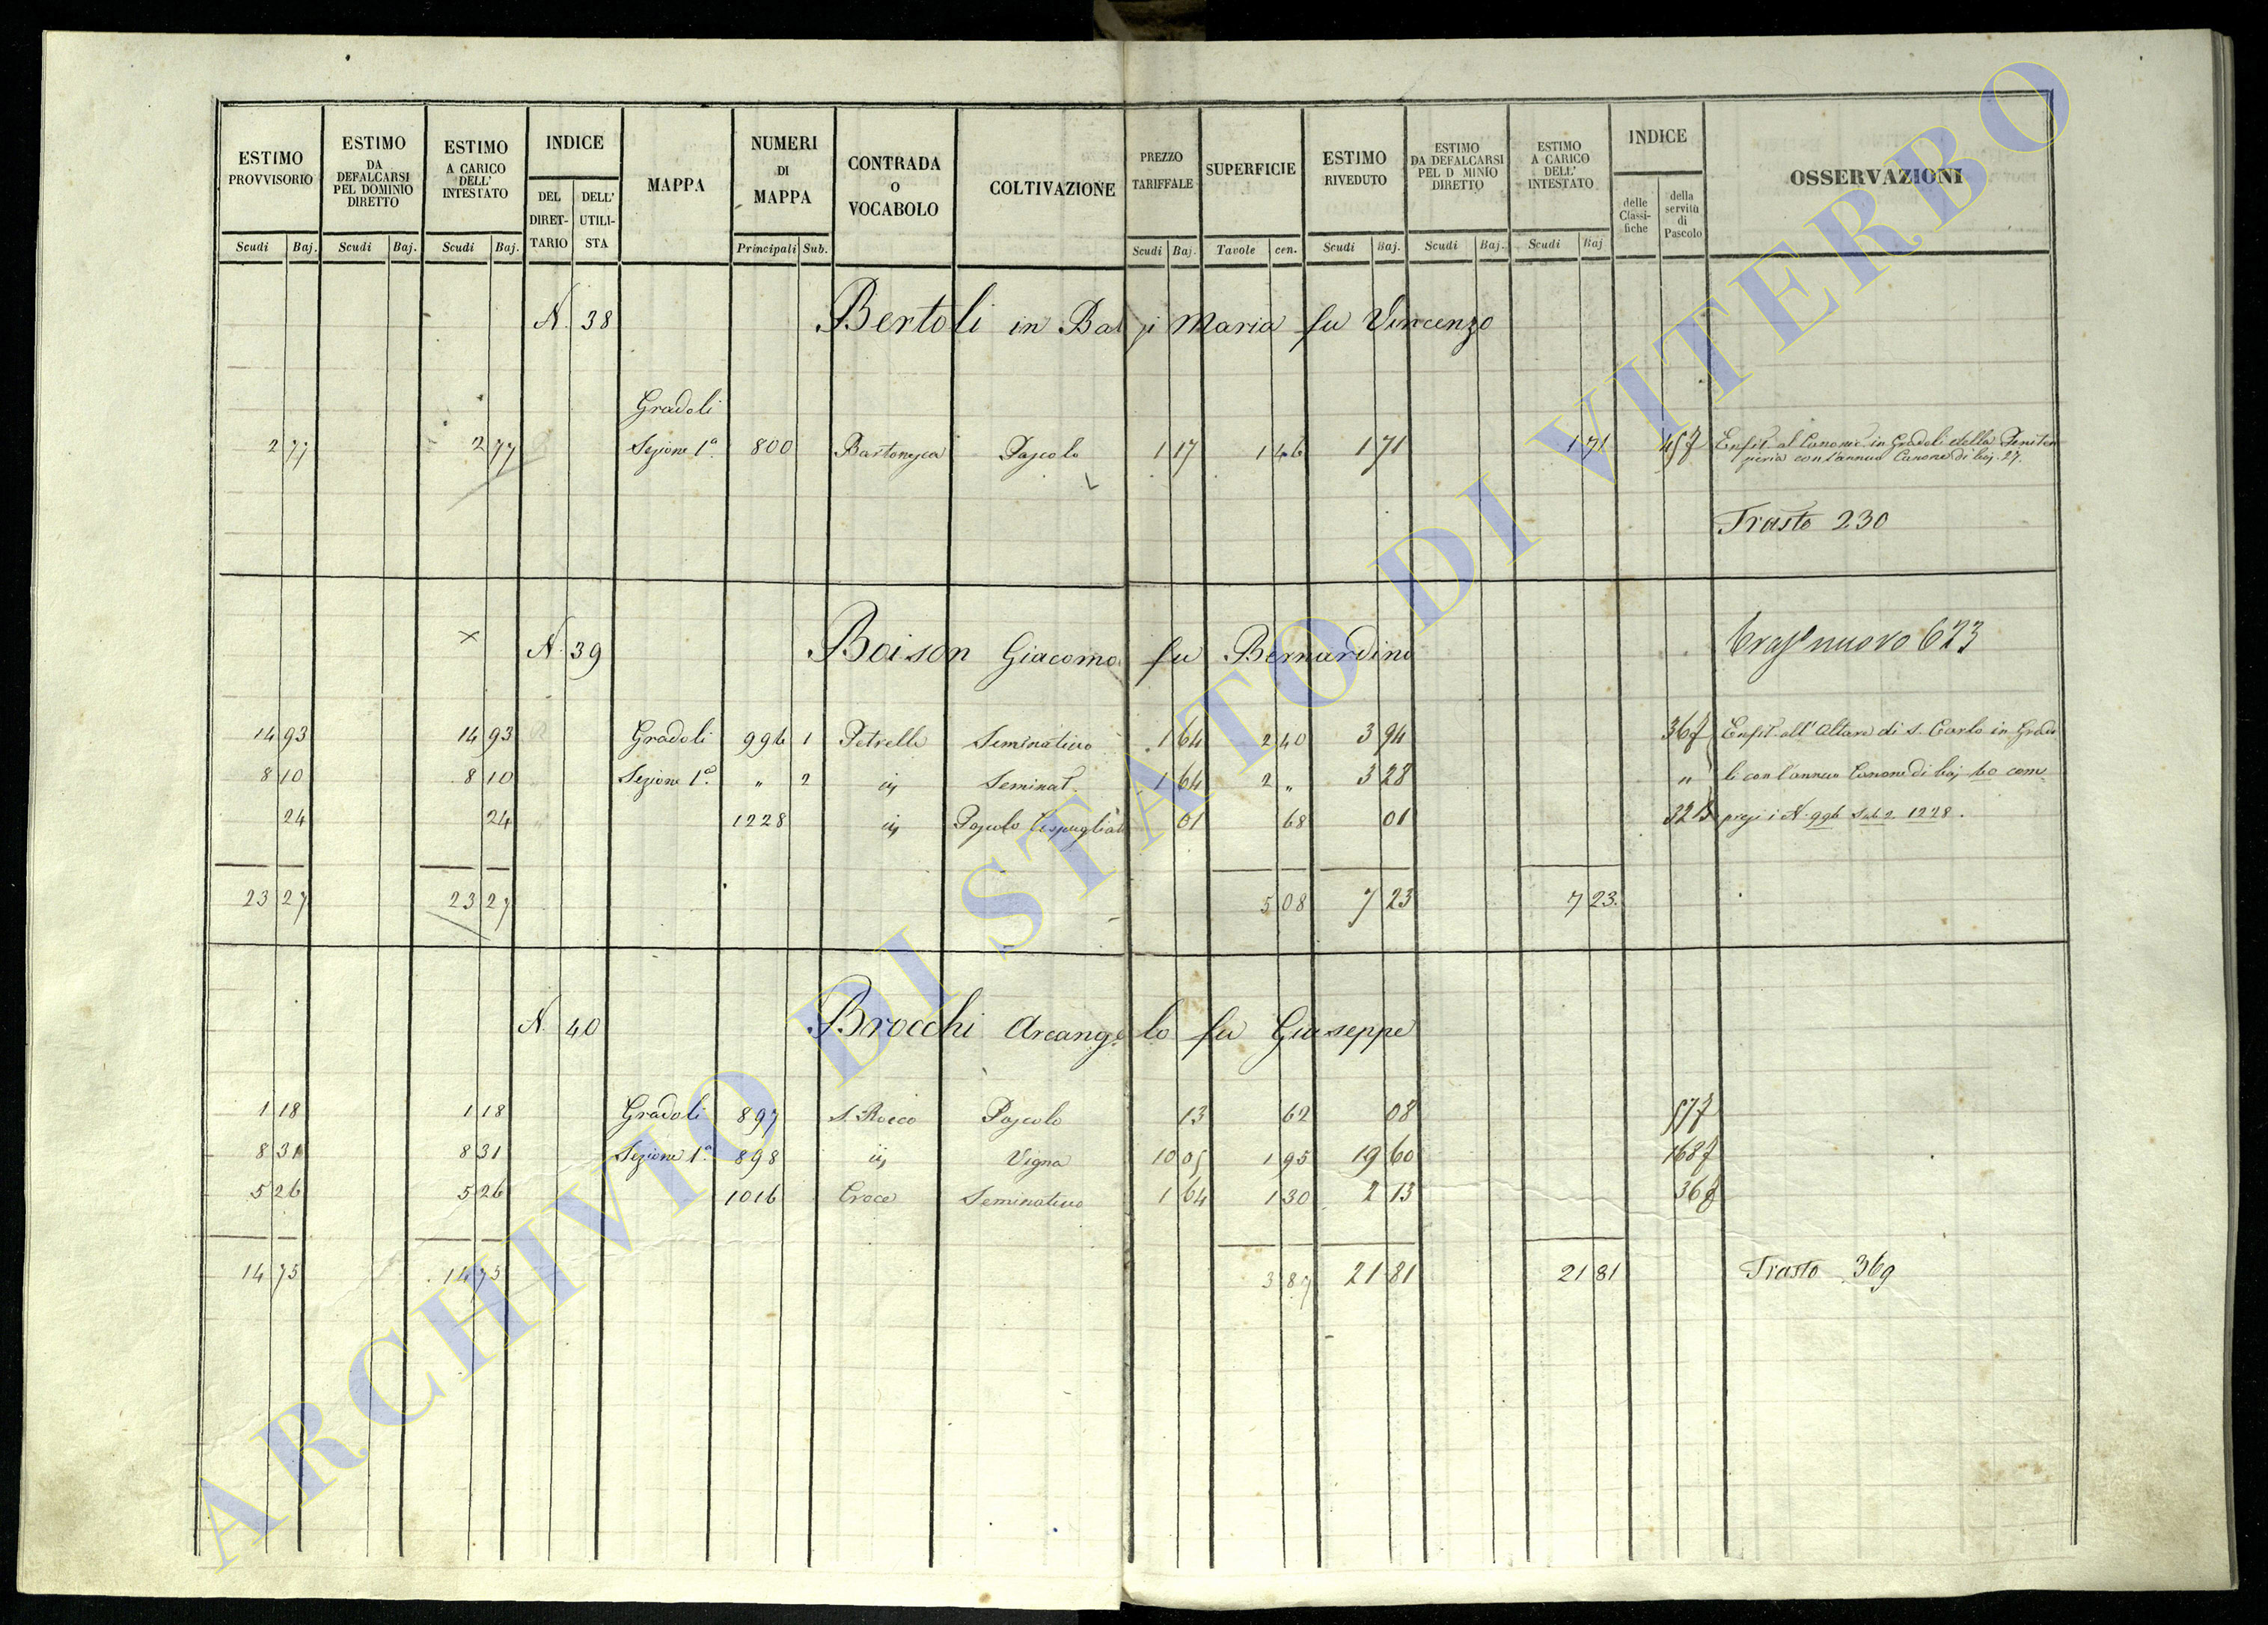 ESTIMO PROVVISORIO | ESTIMO DA DEFALCARSI PEL DOMINIO DIRETTO | ESTIMO A CARICO DELL' INTESTATO | INDICE | MAPPA | NUMERI DI MAPPA | CONTRADA O VOCABOLO | COLTIVAZIONE | PREZZO TARIFFALE | SUPERFICIE | ESTIMO RIVEDUTO | ESTIMO DA DEFALCARSI PEL D MINIO DIRETTO | ESTIMO A CARICO DELL' INTESTATO | INDICE | OSSERVAZIONI
DEL DIRET-TARIO | DELL' UTILI-STA | delle Classi-fiche | della servitù di Pascolo
Scudi | Baj. | Scudi | Baj. | Scudi | Baj. | Principali | Sub. | Scudi | Baj. | Tavole | cen. | Scudi | Baj. | Scudi | Baj. | Scudi | Baj
N. 38 Bertoli in Maria fu Vincenzo
Gradoli
2 77 | 2 77 | Sezione 1ª | 800 | Pascolo | 1 17 | 1 46 | 1 71 | 1 71 | Enfit. al Canonic. in Gradoli della Peniten
zieria con l'annuo Canone di baj. 27.
Trasto 230
N. 39 Boison Giacomo fu Bernardino | nuovo 673
14 93 | 14 93 | Gradoli | 996 | 1 | Petrelle | Seminativo | 1 64 | 2 40 | 3 94 | 36 | Enfit. all' Altare di S. Carlo in Grado
8 10 | 8 10 | Sezione 1ª | " | 2 | Seminat. | 1 64 | 2 " | 3 28 | " | li con l'annuo Canone di baj 60 com
24 | 24 | 1228 | Pascolo Cespugliato | 01 | 68 | 01 | presi i N. 996 Sub 2. 1228.
23 27 | 23 27 | 5 08 | 7 23 | 7 23.
N. 40 Brocchi Arcangelo fu Giuseppe
1 18 | 1 18 | Gradoli | 897 | S. Rocco | Pascolo | 13 | 62 | 08
8 31 | 8 31 | Sezione 1ª | 898 | Vigna | 10 05 | 1 95 | 19 60 | 168
5 26 | 5 26 | 1016 | Croce | Seminativo | 1 64 | 1 30 | 2 13 | 36
14 75 | 14 75 | 3 87 | 21 81 | 21 81 | Trasto 369
ARCHIVIO DI STATO DI VITERBO